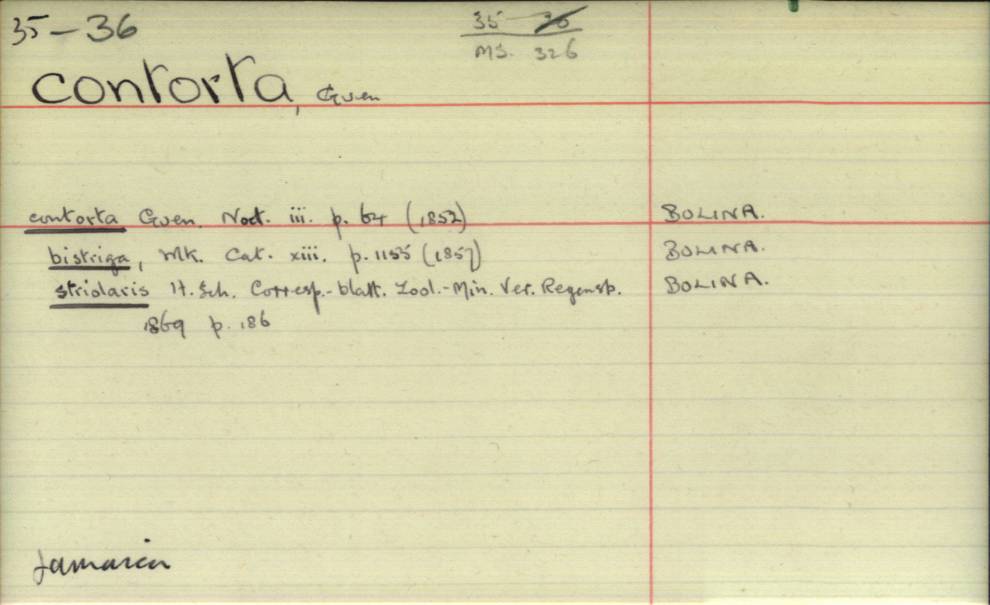 35-36
35 36
MS. 326
contorta, Guen
contorta Guen. Noct. iii. p. 64 (1852) BOLINA.
bistriga, Wlk. Cat. xiii. p. 1155 (1857) BOLINA.
striolaris H.Sch. Corresp.-blatt. Zool.-Min. Ver. Regensb. BOLINA.
1869 p. 186
Jamaica